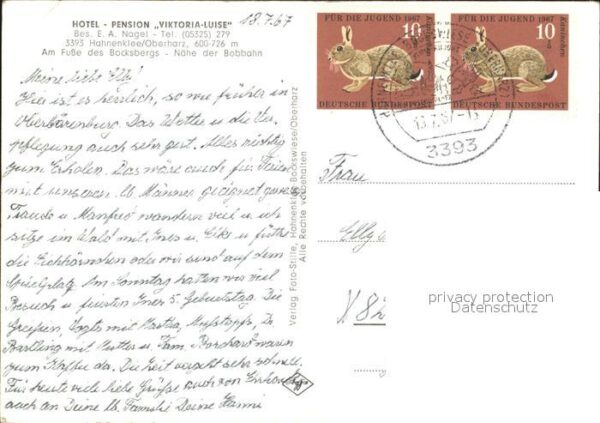 HOTEL - PENSION „VIKTORIA-LUISE"
Bes. E. A. Nagel - Tel. (05325) 279
3393 Hahnenklee/Oberharz, 600-726 m
Am Fuße des Bocksbergs - Nähe der Bobbahn
18.7.67
Meine liebe Elly!
Hier ist es herrlich, so wie früher in
Oberbärenburg. Das Wetter u. die Ver-
pflegung auch sehr gut. Alles richtig
zum Erholen. Das wäre auch für
mit unseren lb. Männer geeignet
Traudo u. Manfred wandern viel u. ich
sitze im Wald mit Ines u. Eike u. fütte
die Eichhörnchen oder wir sind auf dem
Spielplatz. Am Sonntag hatten wir viel
Besuch u. feierten Ines 5. Geburtstag. Die
Greifen, Vogts mit
Bartling mit Mutter u. Fam. Borchard waren
zum Kaffee da. Die Zeit vergeht sehr schnell.
Für heute viele liebe Grüße auch von
auch an Deine lb. Familie Deine Hanni
Verlag Foto-Stille, Hahnenklee-Bockswiese/Oberharz
Alle Rechte vorbehalten
FÜR DIE JUGEND 1967
10
Kaninchen
DEUTSCHE BUNDESPOST
FÜR DIE JUGEND 1967
10
Kaninchen
DEUTSCHE BUNDESPOST
3393
Frau
Elly
privacy protection
Datenschutz